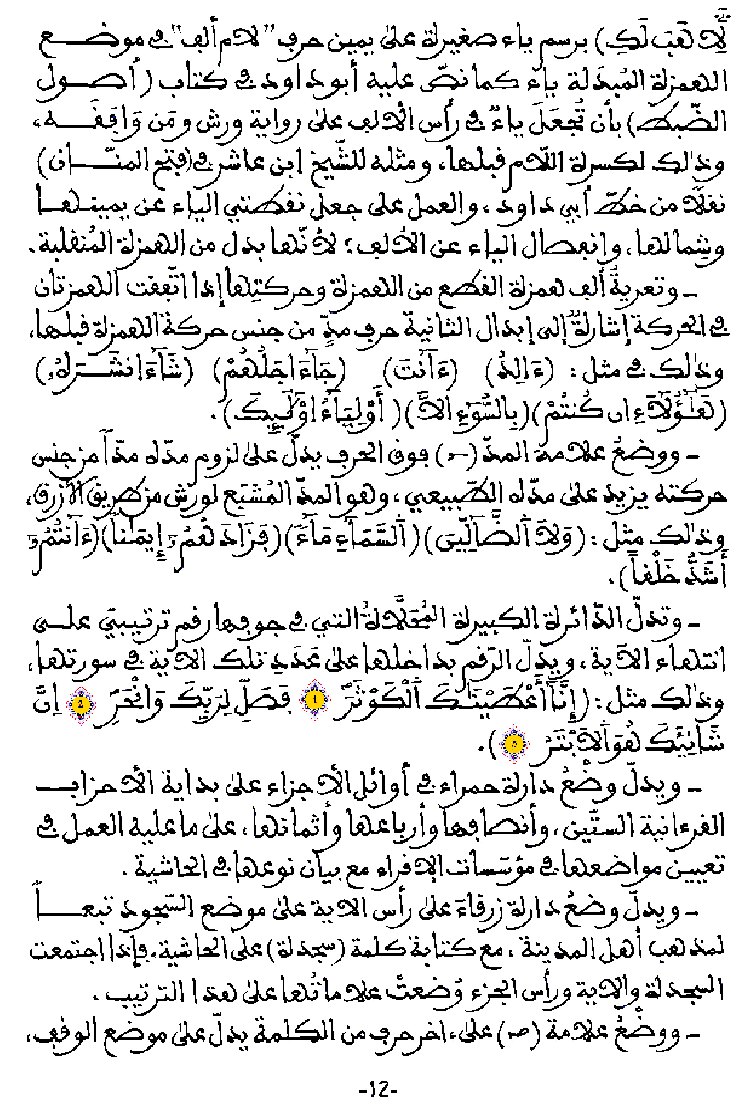 لِأَهَبَ لَكِ) برسم ياء صغيرة على يمين حرف "لام ألف" في موضع
الهمزة المُبدَلة ياءً كما نصّ عليه أبو داود في كتاب (أصول
الضّبط) بأن تُجعَلَ ياءٌ في رأس الالف على رواية ورش ومَن وَافقَه،
وذالك لكسرة اللّام قبلها، ومثله للشّيخ ابن عاشر في (فتح المنّان)
نقلًا من خطّ أبي داود، والعمل على جعل نقطتي الياء عن يمينها
وشمالها، وانفصال الياء عن الألف؛ لأنّها بدل من الهمزة المُنقلبة.
- وتعريةُ ألف همزة القطع من الهمزة وحركتِها إذا اتّفقت الهمزتان
في الحركة إشارةٌ إلى إبدال الثانية حرف مدّ من جنس حركة الهمزة قبلها،
وذالك في مثل: (ءَالِدُ) (ءَآنتَ) (جَآءَ اجَلُهُمْ) (شَآءَ انشَرَهُۥ)
(هَٰٓؤُلَآءِ ان كُنتُمْ) (بِالسُّوٓءِ الَّا) (أَوْلِيَآءُ اوْلَٰٓئِكَ).
- ووضعُ علامة المدّ (~) فوق الحرف يدلّ على لزوم مدّه مدًّا من جنس
حركته يزيد على مدّه الطّبيعي، وهو المدّ المُشبَع لورش من طريق الأزرق،
وذالك مثل: (وَلَا اَ۬لضَّآلِّينَ) (اَ۬لسَّمَآءِ مَآءً) (فَزَادَهُمُۥٓ إِيمَٰناً) (ءَآنتُمُۥٓ
أَشَدُّ خَلْقاً).
- وتدلّ الدّائرة الكبيرة المُحَلَّاةُ التي في جوفها رقم ترتيبيّ على
انتهاء الآية، ويدلّ الرّقم بداخلها على عَدَدِ تلك الآية في سورتها،
وذالك مثل: (إِنَّآ أَعْطَيْنَٰكَ اَ۬لْكَوْثَرَ 1 فَصَلِّ لِرَبِّكَ وَانْحَرِ 2 اِنَّ
شَانِئَكَ هُوَ اَ۬لَابْتَرُ 3).
- ويدلّ وضعُ دارة حمراء في أوائل الأجزاء على بداية الأحزاب
القرءانية الستّين، وأنصافها وأرباعها وأثمانها، على ما عليه العمل في
تعيين مواضعها في مؤسّسات الإقراء مع بيان نوعها في الحاشية.
- ويدلّ وضعُ دارة زرقاءَ على رأس الآية على موضع السّجود تبعاً
لمذهب أهل المدينة، مع كتابة كلمة (سجدة) على الحاشية، فإذا اجتمعت
السجدة والآية ورأس الجزء وُضعتْ علاماتُها على هذا الترتيب.
- ووضعُ علامة (صـ) على ءاخر حرف من الكلمة يدلّ على موضع الوقف،
-12-